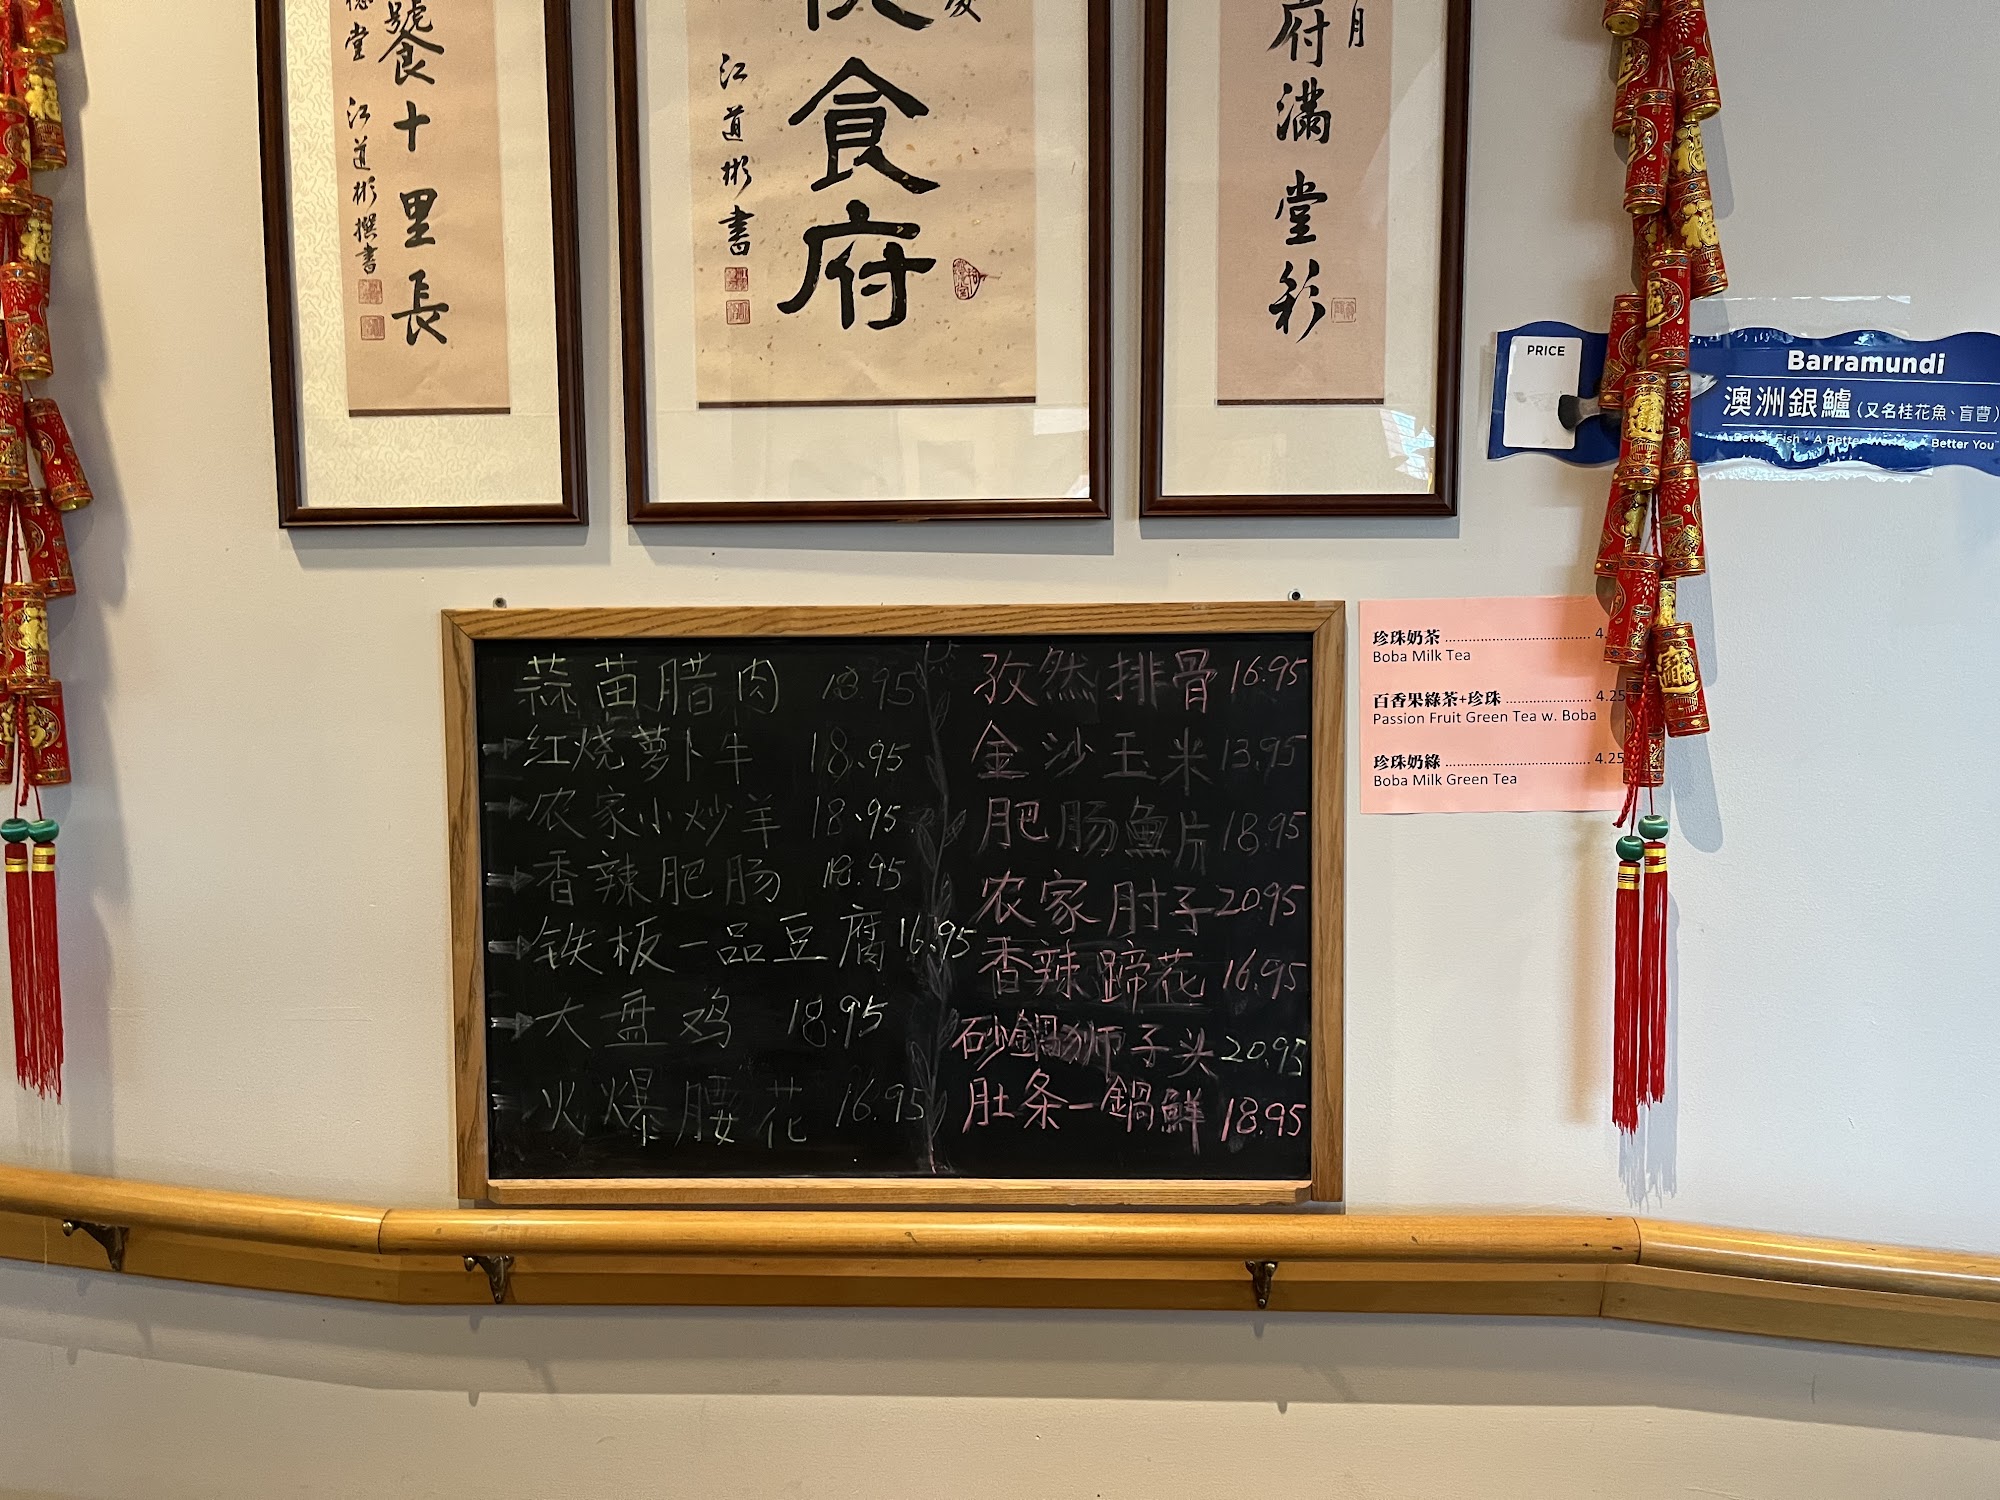 饕十里長
江道彬撰書
食府
江道彬書
府滿堂彩
月
PRICE
Barramundi
澳洲銀鱸(又名桂花魚、盲曹)
A Better Fish • A Better World • A Better You
蒜苗腊肉 18.95
红烧萝卜牛 18.95
农家小炒羊 18.95
香辣肥肠 18.95
铁板一品豆腐 16.95
大盘鸡 18.95
火爆腰花 16.95
孜然排骨 16.95
金沙玉米 13.95
肥肠魚片 18.95
农家肘子 20.95
香辣蹄花 16.95
砂鍋狮子头 20.95
肚条一鍋鮮 18.95
珍珠奶茶 ..................................... 4.
Boba Milk Tea
百香果綠茶+珍珠 ...................... 4.25
Passion Fruit Green Tea w. Boba
珍珠奶綠 ..................................... 4.25
Boba Milk Green Tea